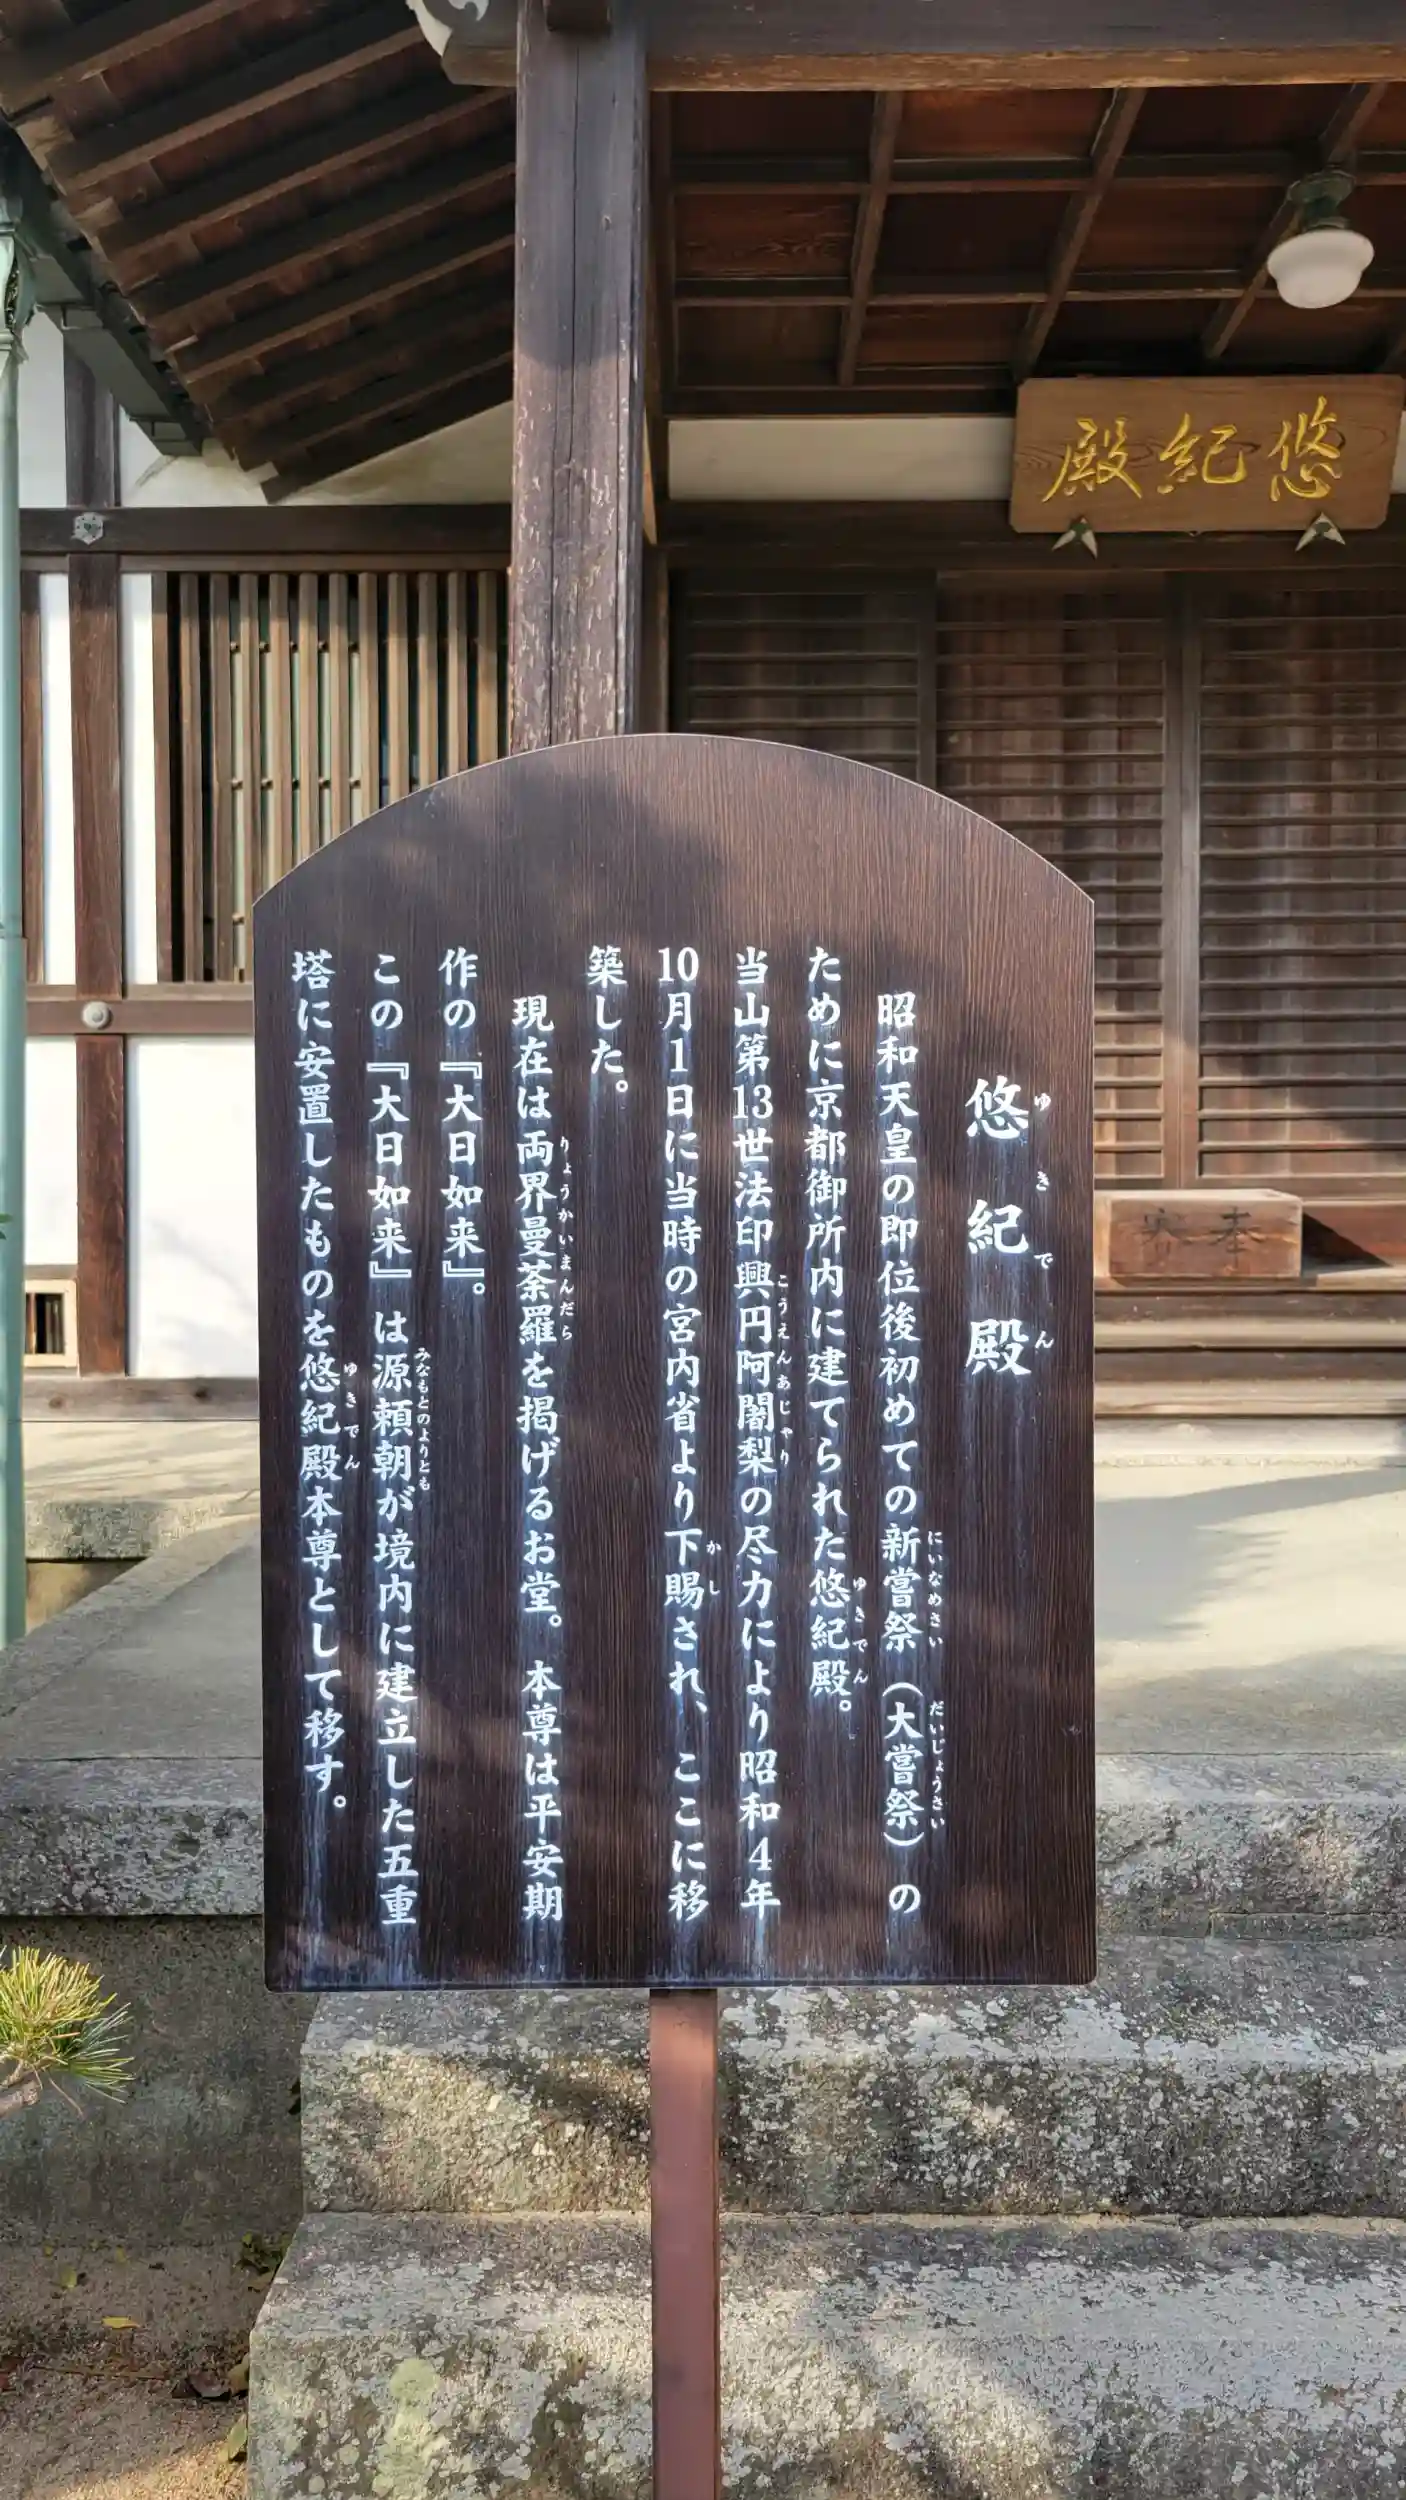 悠紀殿
悠紀殿
ゆきでん
昭和天皇の即位後初めての新嘗祭（大嘗祭）の
にいなめさい
だいじょうさい
ために京都御所内に建てられた悠紀殿。
ゆきでん
当山第13世法印興円阿闍梨の尽力により昭和4年
こうえんあじゃり
10月1日に当時の宮内省より下賜され、ここに移
かし
築した。
現在は両界曼荼羅を掲げるお堂。本尊は平安期
りょうかいまんだら
作の『大日如来』。
この『大日如来』は源頼朝が境内に建立した五重
みなもとのよりとも
塔に安置したものを悠紀殿本尊として移す。
ゆきでん